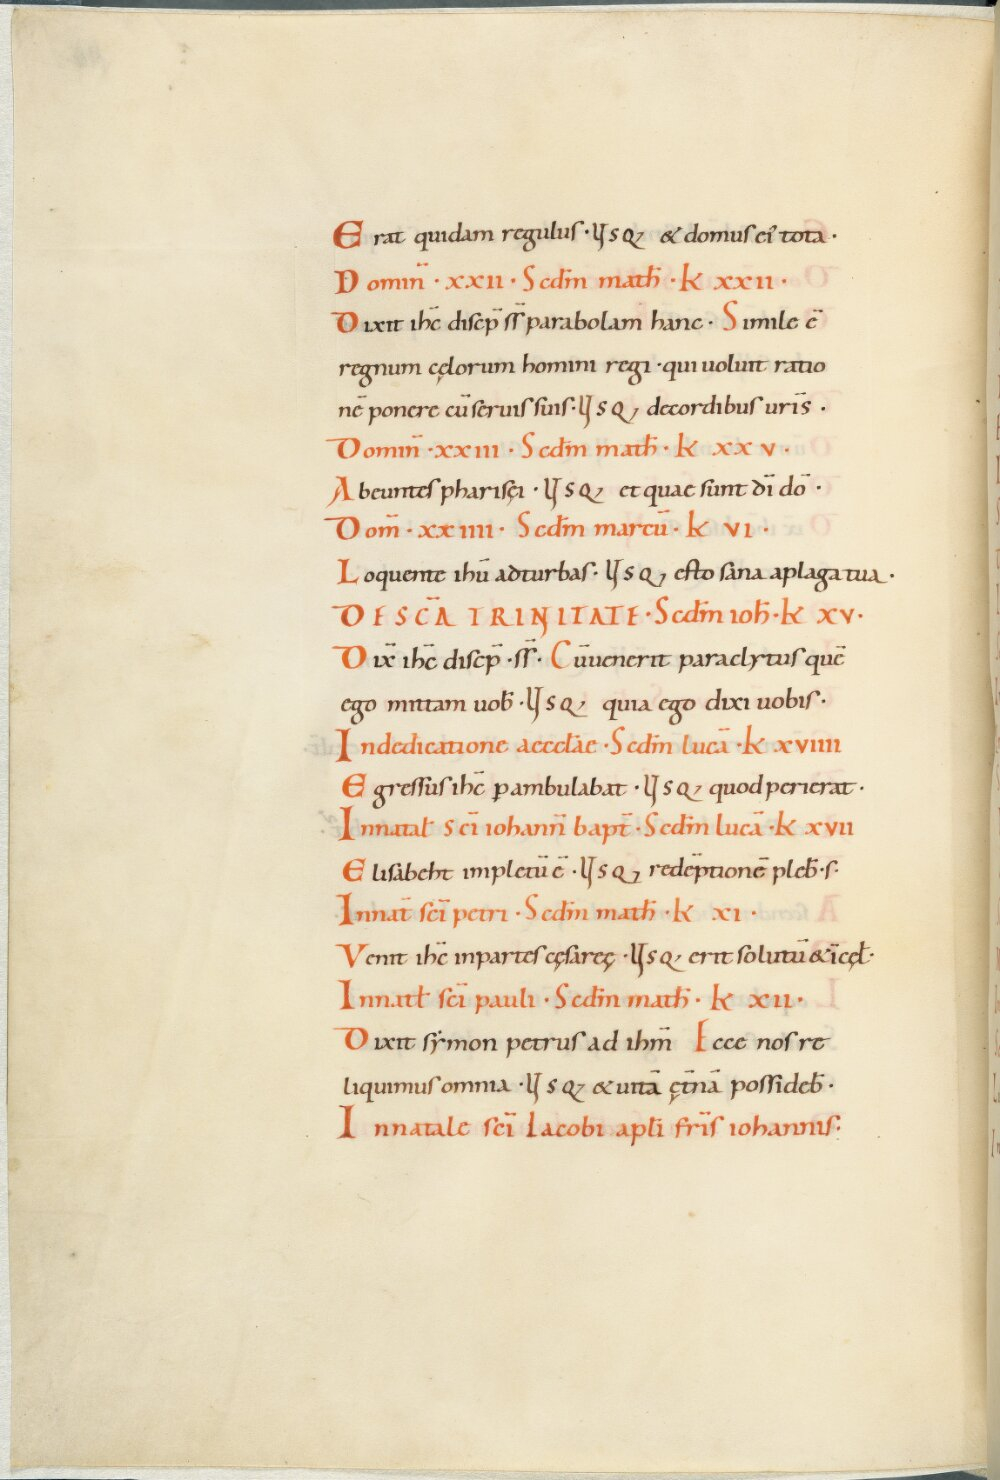 Erat quidam regulus · usq; & domus ei᷒ tota ·
Domiñ · xxii · Scdm̄ math̄ · k xxii ·
Dixit ihc̄ discip̄ ss̄ parabolam hanc · Simile ē
regnum cęlorum homini regi · qui uoluit ratio
nē ponere cū seruis suis · usq; decordibus uris̄ ·
Domiñ · xxiii · Scdm̄ math̄ · k xxv ·
Abeuntes pharisęi · usq; et quae sunt dī dō ·
Dom̄ · xxiiii · Scdm̄ marcū · k vi ·
Loquente ihū adturbas · usq; esto sana aplaga tua ·
DE SCĀ TRINITATE · Scdm̄ ioh̄ · k xv ·
Dix̄ ihc̄ discip̄ · ss̄ · Cū uenerit paraclytus quē
ego mittam uob̄ · usq; quia ego dixi uobis ·
Indedicatione aecclae · Scdm̄ lucā · k xviiii
Egressus ihc̄ perambulabat · usq; quod perierat ·
Innatal̄ sci̅ iohanñ bapt̄ · Scdm̄ lucā · k xvii
Elisabeht impletū ē · usq; redēptionē pleb̄ · s ·
Innat̄ sci̅ petri · Scdm̄ math̄ · k xi ·
Venit ihc̄ inpartes cęsareę · usq; erit solutū & ī cęl̄ ·
Innatl̄ sci̅ pauli · Scdm̄ math̄ · k xii ·
Dixit symon petrus ad ihm̄ Ecce nos re
liquimus omnia · usq; & uitā ęt̄nā possideb̄ ·
Innatale sci̅ Iacobi apl̄i fris̄ iohannis :